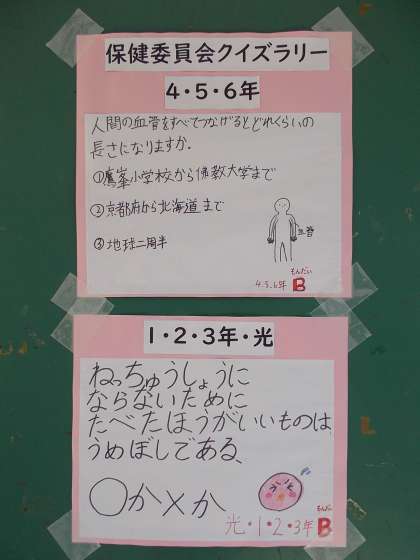 保健委員会クイズラリー
4・5・6年
人間の血管をすべてつなげるとどれくらいの
長さになりますか.
①鷹峯小学校から佛教大学まで
②京都府から北海道まで
③地球二周半
血管
もんだい
4.5.6年 B
1・2・3年・光
ねっちゅうしょうに
ならないために
たべたほうがいいものは、
うめぼしである、
○か×か
もんだい
光・1・2・3年 B